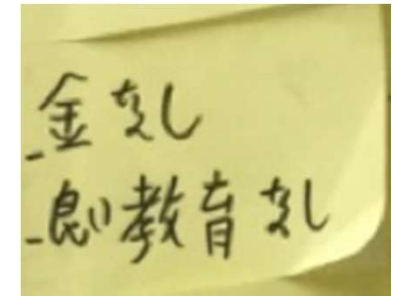 _金なし
_良い教育なし